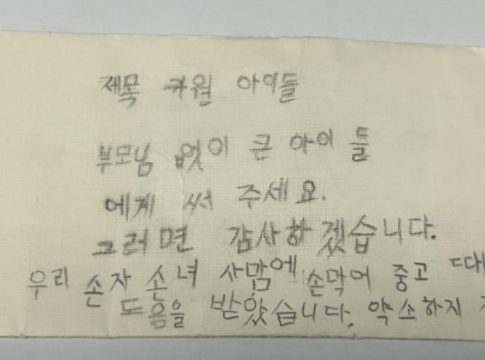 제목 귀원 아이들
부모님 없이 큰 아이들
에게 써 주세요.
그러면 감사하겠습니다.
우리 손자 손녀 사맘에 손막어 중고 때
도음을 받았습니다. 약소하지